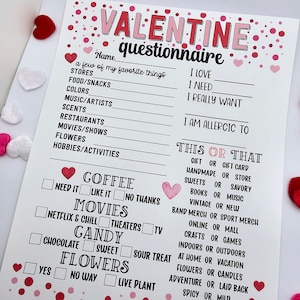 VALENTINE
questionnaire
Name
a few of my favorite things
STORES
FOOD/SNACKS
COLORS
MUSIC/ARTISTS
SCENTS
RESTAURANTS
MOVIES/SHOWS
FLOWERS
HOBBIES/ACTIVITIES
I LOVE
I NEED
I REALLY WANT
I AM ALLERGIC TO
COFFEE
NEED IT LIKE IT NO THANKS
MOVIES
NETFLIX & CHILL THEATERS TV
CANDY
CHOCOLATE SWEET SOUR TREAT
FLOWERS
YES NO WAY LIVE PLANT
THIS OR THAT
GIFT OR GIFT CARD
HANDMADE OR STORE
SWEETS OR SAVORY
BOOKS OR MUSIC
VINTAGE OR NEW
BAND MERCH OR SPORT MERCH
ONLINE OR MALL
CRAFTS OR GAMES
INDOORS OR OUTDOORS
AT HOME OR VACATION
FLOWERS OR CANDLES
ADVENTURE OR LAID BACK
SPICY OR MILD